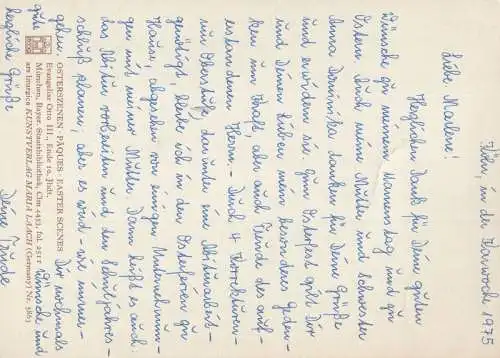 Köln, in der Karwoche 1975
Liebe Marlene!
Herzlichen Dank für Deine guten
Wünsche zu meinem Namenstag und zu
Ostern. Auch meine Mutter und Schwester
Anna Dominika danken für Deine Grüße
und erwidern sie. Zum Osterfest gilt Dir
und Deinen Lieben mein besonderes Geden-
ken um Kraft, aber auch Freude des auf-
erstandenen Herrn. – Durch 4 Korrekturen –
zur Oberstufe, darunter eine Abiturarbeit –
genötigt, bleibe ich in den Osterferien zu
Hause, abgesehen von einigen Unternehmun-
gen mit meiner Mutter. Dann heißt es auch:
das Abitur vorbereiten und den Schuljahres-
schluß planen; aber es wird – wie immer –
gehen. Dir nochmals
gute Wünsche und
herzliche Grüße Deine Trude
OSTERSZENEN · PÂQUES · EASTER SCENES
Evangeliar Otto III., Ende 10. Jhdt.
München, Bayer. Staatsbibliothek, Clm 4453, fol. 251 r
ars liturgica KUNSTVERLAG MARIA LAACH (Germany) Nr. 5863